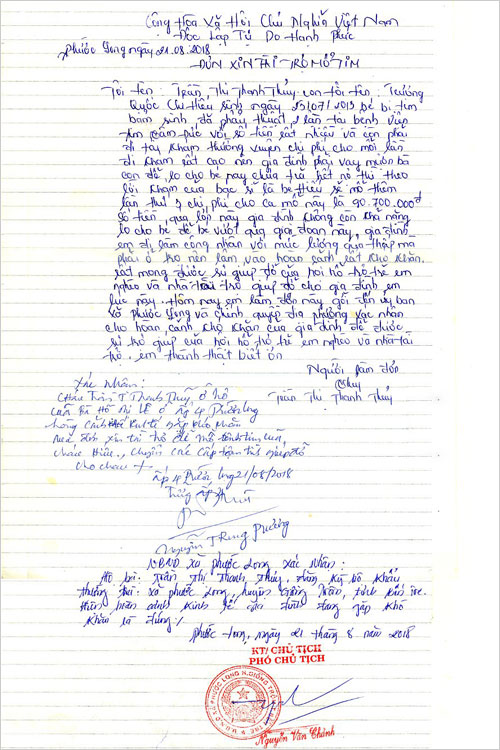 Cộng Hòa Xã Hội Chủ Nghĩa Việt Nam
Độc Lập Tự Do Hạnh Phúc
Phước Long ngày 21.08.2018
ĐƠN XIN TÀI TRỢ MỔ TIM
Tôi tên: Trần Thị Thanh Thủy con tôi tên: Trương
Quốc Chí Hiếu sinh ngày 23/07/2013 bé bị tim
bẩm sinh đã phẩu thuật 1 lần tại bệnh viện
tim tâm Đức với số tiền rất nhiều và còn phải
đi tái khám thường xuyên chi phí cho mỗi lần
đi khám rất cao nên gia đình phải vay mượn bà
con để lo cho bé nay chưa trả hết nợ thì theo
lời khám của bác sĩ là bé Hiếu sẽ mổ thêm
lần thứ chi phí cho ca mổ này là 90.700.000đ
số tiền quá lớn này gia đình không còn khả năng
lo cho bé để bé vượt qua giai đoạn này, gia đình
em đi làm công nhân với mức lương quá thấp mà
phải ở trọ nên lâm vào hoàn cảnh rất khó khăn.
rất mong được sự giúp đỡ của hội hổ trợ trẻ em
nghèo và nhà tài trợ giúp đỡ cho gia đình em
lúc này. Hôm nay em làm đơn này gởi đến ủy ban
xã phước Long và chính quyền địa phương xác nhận
cho hoàn cảnh khó khăn của gia đình để được
sự trợ giúp của hội hổ trợ trẻ em nghèo và nhà tài
trợ. em thành thật biết ơn
Người làm đơn
Thuy
Trần Thị Thanh Thủy
Xác Nhận:
Cháu Trần T Thanh Thủy ở hộ
của Bà Hồ Thị Lệ ở ấp 4 Phước Long
hoàn cảnh kinh tế gặp khó khăn
nên đơn xin tài trợ để mổ bệnh tim của
cháu Hiếu, chuyển các cấp tận tình giúp đỡ
cho cháu
Ấp 4 Phước Long 21/08/2018
Trưởng ấp 4
Nguyễn Trung Phương
UBND xã phước Long xác nhận:
Hộ bà: Trần Thị Thanh Thủy, đăng ký hộ khẩu
thường trú: xã phước Long, huyện Giồng Trôm, tỉnh Bến Tre.
Hiện hoàn cảnh kinh tế gia đình đang gặp khó
khăn là đúng./
phước Long, ngày 21 tháng 8 năm 2018
KT/ CHỦ TỊCH
PHÓ CHỦ TỊCH
Nguyễn Văn Chánh